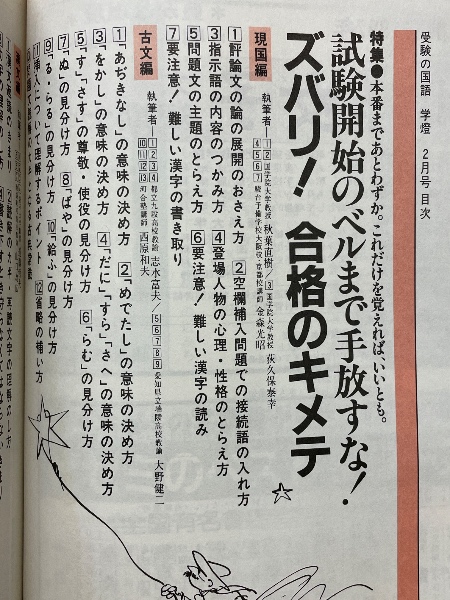 受験の国語 学燈 2月号 目次
特集●本番まであとわずか。これだけを覚えれば、いいとも。
試験開始のベルまで手放すな!
ズバリ! 合格のキメテ
現国編
執筆者―1 2 国学院大学教授 秋葉直樹/3 国学院大学教授 荻久保泰幸
4 5 6 7 駿台予備学校大阪校・京都校講師 金森光昭
1 評論文の論の展開のおさえ方
2 空欄補入問題での接続語の入れ方
3 指示語の内容のつかみ方
4 登場人物の心理・性格のとらえ方
5 問題文の主題のとらえ方
6 要注意! 難しい漢字の読み
7 要注意! 難しい漢字の書き取り
古文編
執筆者―1 2 3 4 都立九段高校教諭 志水富夫/5 6 7 8 9 愛知県立瑞陵高校教諭 大野健二
10 11 12 13 河合塾講師 西原和夫
1「あぢきなし」の意味の決め方
2「めでたし」の意味の決め方
3「をかし」の意味の決め方
4「だに」「すら」「さへ」の意味の決め方
5「す」「さす」の尊敬・使役の見分け方
6「らむ」の見分け方
7「ぬ」の見分け方
8「ばや」の見分け方
9「る・らる」の見分け方
10「給ふ」の見分け方
11 挿入について理解するポイント
12 省略の補い方
漢文編